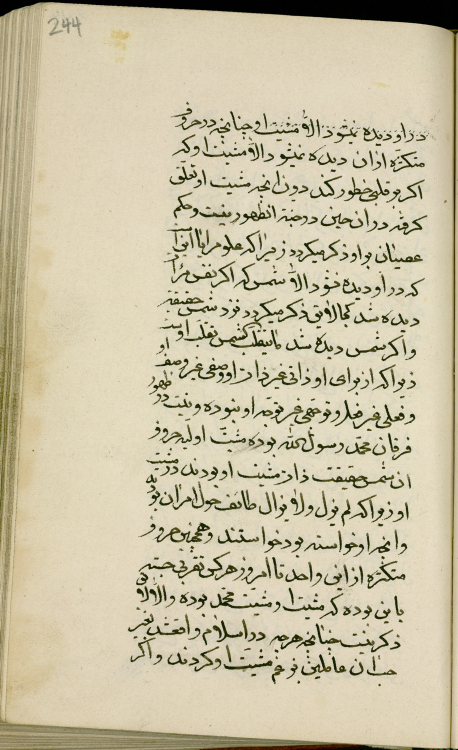 244
در او دیده نمیشود الا مشیت او چنانچه در حروف
متکثره ازان دیده نمیشود الا مشیت او که
اکر بر قلبی خطور کند دون انچه مشیت او تعلق
کرفته در ان حین در جنة ان ظهور نیست و حکم
عصیان بر او ذکر میکردد زیرا که علو مرایا این است
که در او دیده نشود الا شمس که اکر نفس مرآ
دیده شد کجا لایق ذکر میکردد نزد شمس حقیقة
و اکر شمس دیده شد
زیرا که از برای او ذاتی غیر ذات او و وصفی غیر وصف او
و فعلی غیر فعل او و توجهی غیر توجه او نبوده و نیست در ظهور
فرقان محمد رسول الله بوده مشیت اولیه حروف
ان شمس حقیقت ذات مشیت او بودند در مشیت
او زیرا که لم یزل و لا یزال طائف حول امر ان بوده
و انچه او خواسته بود خواستند و همچنین حروف
متکثره از این واحد تا امروز هر کس تقرب جسته
باین بوده که مشیت او مشیت محمد بوده و الا لایق
ذکر نیست چنانچه هر چه در اسلام واقع شد بغیر
حب ان عاملین بزعم مشیت او کردند و اکر